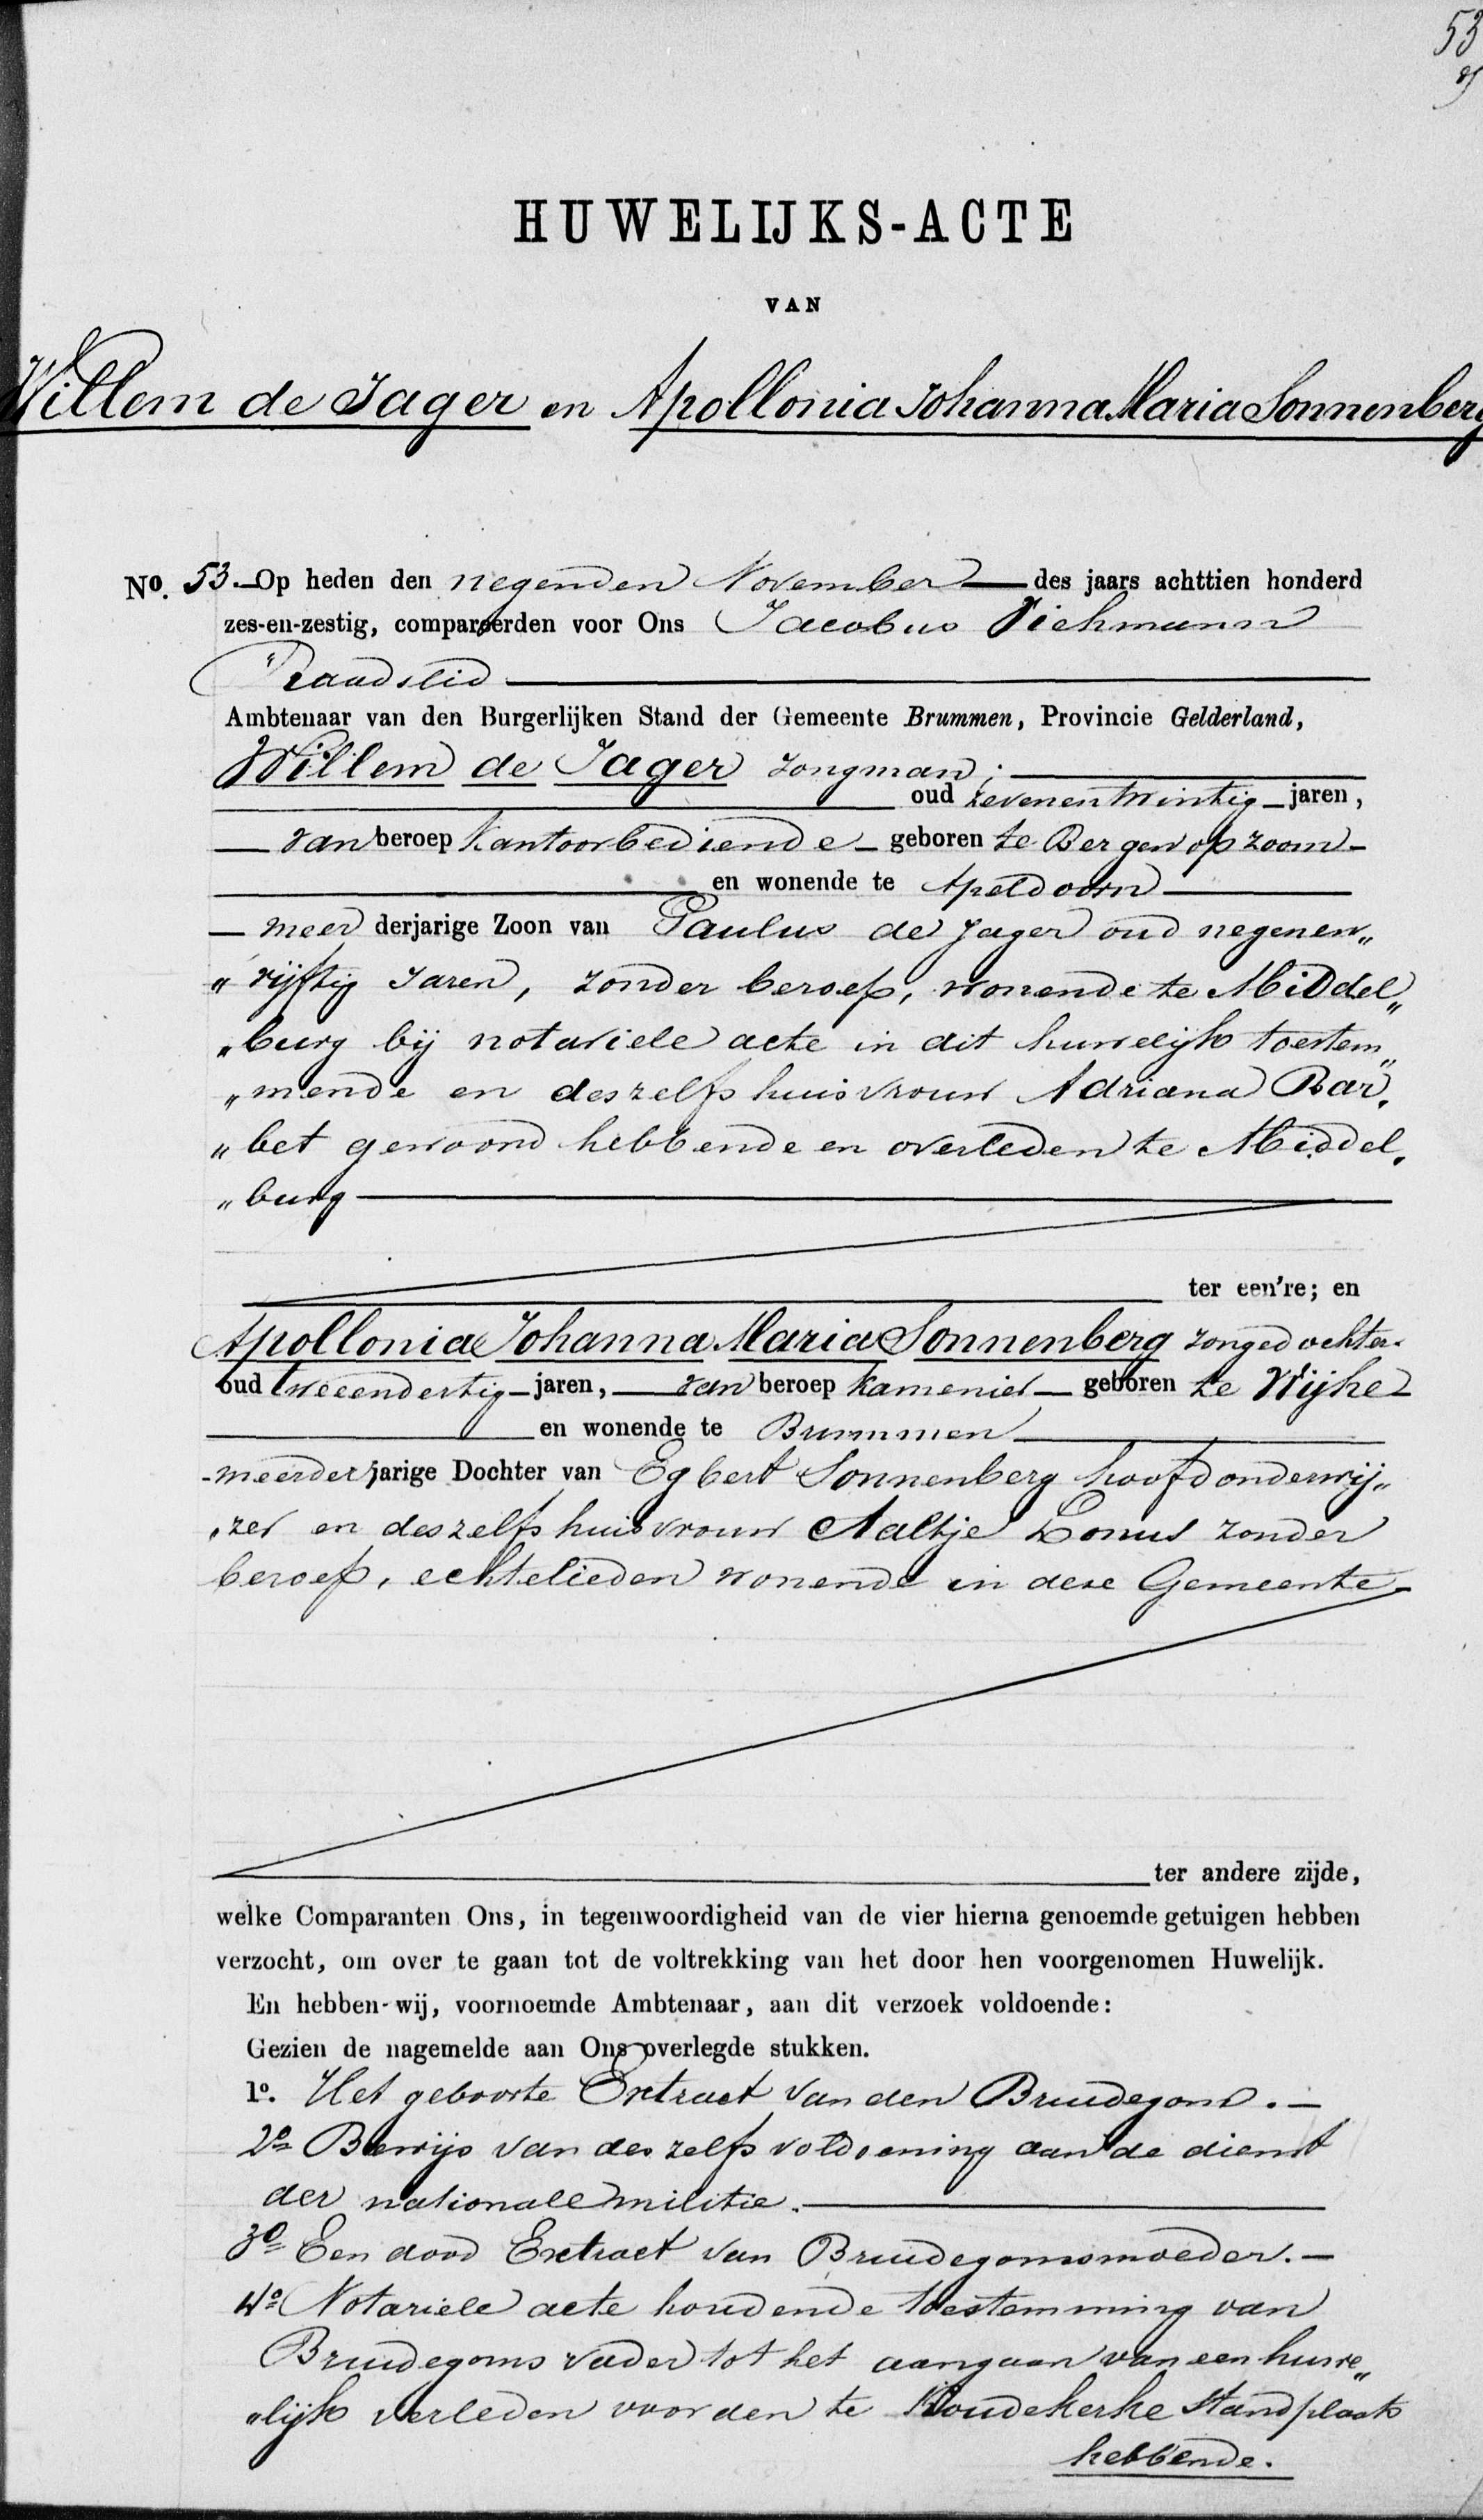 53
HUWELIJKS-ACTE
VAN
Willem de Jager en Apollonia Johanna Maria Sonnenberg
No. 53.-Op heden den negenden November des jaars achttien honderd
zes-en-zestig, compareerden voor Ons Jacobus Viehmann
Raadslid
Ambtenaar van den Burgerlijken Stand der Gemeente Brummen, Provincie Gelderland,
Willem de Jager Jongman;
oud zevenentwintig jaren,
van beroep Kantoorbediende geboren te Bergen op zoom
en wonende te Apeldoorn
meer derjarige Zoon van Paulus de Jager oud negenen„
„vijftig Jaren, zonder beroep, wonende te Middel„
„burg bij notariele acte in dit huwelijk toestem„
„mende en deszelfs huisvrouw Adriana Bar„
„bet gewoond hebbende en overleden te Middel„
„burg
ter een're; en
Apollonia Johanna Maria Sonnenberg Jongedochter
oud tweeendertig jaren, van beroep kamenier geboren te Wijhe
en wonende te Brummen
meerderjarige Dochter van Egbert Sonnenberg hoofdonderwij„
„zer en deszelfs huisvrouw Aaltje Lonus zonder
beroep, echtelieden wonende in deze Gemeente
ter andere zijde,
welke Comparanten Ons, in tegenwoordigheid van de vier hierna genoemde getuigen hebben
verzocht, om over te gaan tot de voltrekking van het door hen voorgenomen Huwelijk.
En hebben wij, voornoemde Ambtenaar, aan dit verzoek voldoende:
Gezien de nagemelde aan Ons overlegde stukken.
1o. Het geboorte Extract van den Bruidegom.
2o Bewijs van deszelfs voldoening aan de dienst
der nationale militie.
3o Een dood Extract van Bruidegomsmoeder.
4o Notariele acte houdende toestemming van
Bruidegoms vader tot het aangaan van een huwe„
„lijk verleden voor den te Koudekerke Standplaats
hebbende.